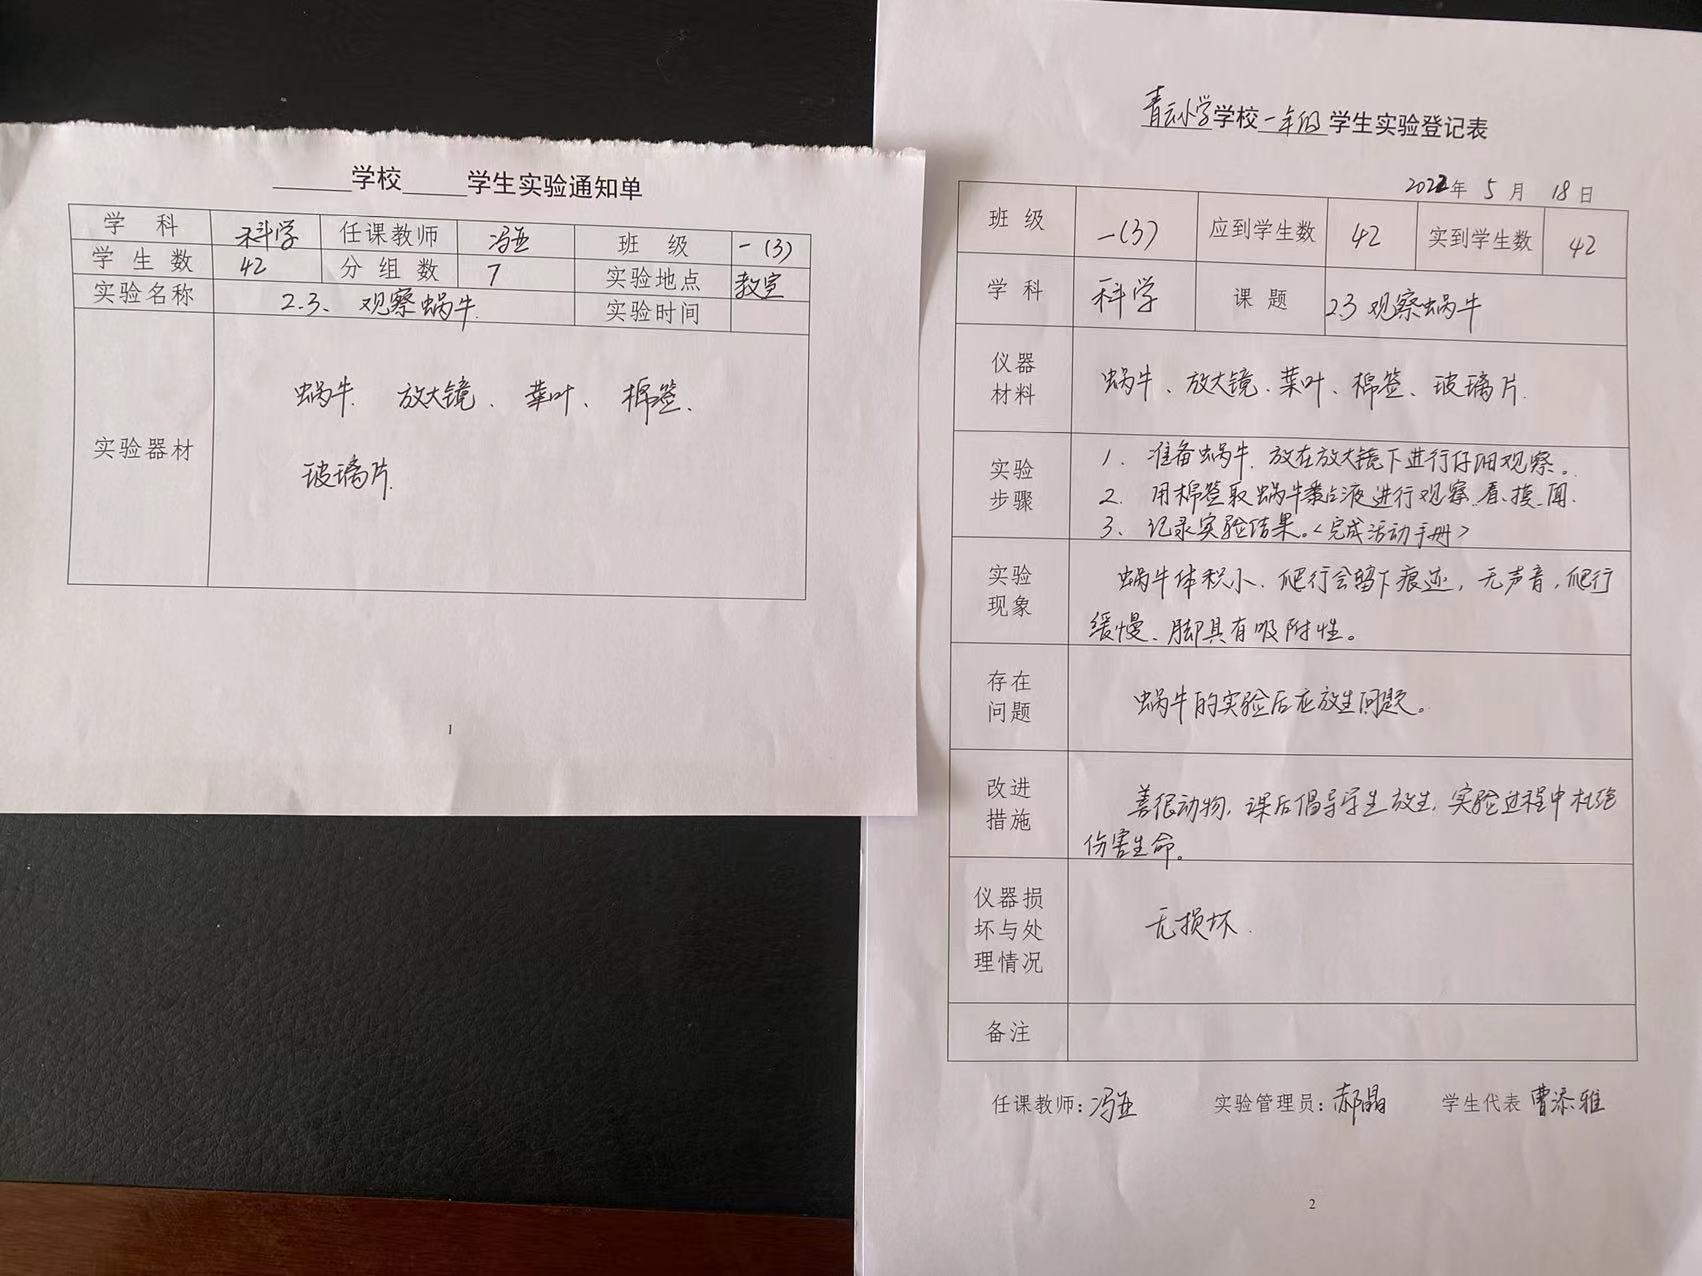 学校 学生实验通知单
学科 科学 任课教师 冯亚 班级 一(3)
学生数 42 分组数 7 实验地点 教室
实验名称 2.3、观察蜗牛. 实验时间
实验器材
蜗牛、放大镜、菜叶、棉签、
玻璃片.
1
青云小学学校一年级学生实验登记表
2022年 5月 18日
班级 一(3) 应到学生数 42 实到学生数 42
学科 科学 课题 2.3 观察蜗牛
仪器
材料
蜗牛、放大镜、菜叶、棉签、玻璃片.
实验
步骤
1. 准备蜗牛、放在放大镜下进行仔细观察。
2. 用棉签取蜗牛黏液进行观察、看、摸、闻.
3、记录实验结果。<完成活动手册>
实验
现象
蜗牛体积小、爬行会留下痕迹,无声音,爬行
缓慢、脚具有吸附性。
存在
问题
蜗牛的实验后应放生问题。
改进
措施
动物,课后倡导学生放生,实验过程中杜绝
伤害生命。
仪器损
坏与处
理情况
无损坏.
备注
任课教师:冯亚 实验管理员:郝晶 学生代表 曹添雅
2